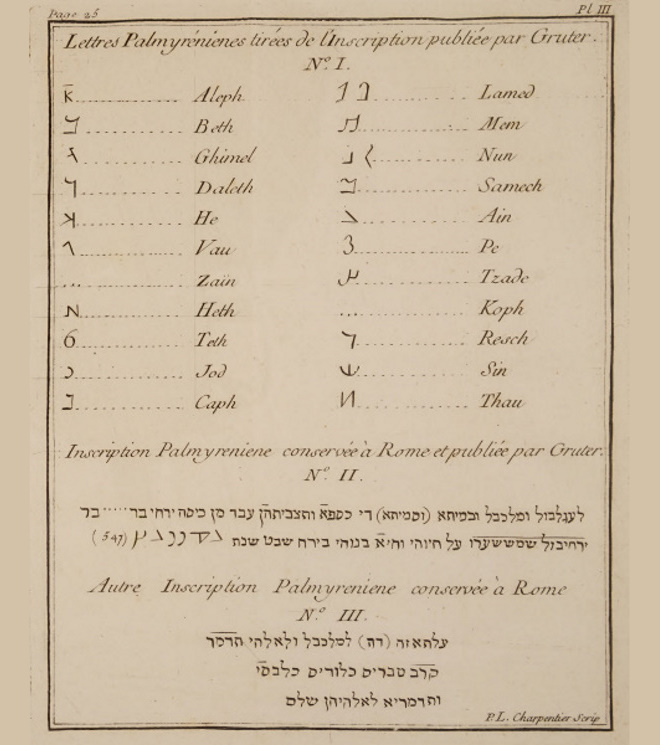 Page 25
Pl III
Lettres Palmyrénienes tirées de l'Inscription publiée par Gruter.
N.º I.
Aleph
Beth
Ghimel
Daleth
He
Vau
Zaïn
Heth
Teth
Jod
Caph
Lamed
Mem
Nun
Samech
Ain
Pe
Tzade
Koph
Resch
Sin
Thau
Inscription Palmyreniene conservée à Rome et publiée par Gruter.
N.º II.
לעגלבול ומלכבל וכמיתא (וסמיתא) די כספא ותצביתהן עבד מן כיסה ירחי בר ····· בר
ירחיבול שמששערו על חיוהי וחיא בנוהי בירח שבט שנת (547)
Autre Inscription Palmyreniene conservée à Rome
N.º III.
עלתא זה (דה) למלכבל ולאלהי תדמר
קרב טבריס כלודיס כלבסי
ותדמריא לאלהיהן שלם
P.L. Charpentier Scrip